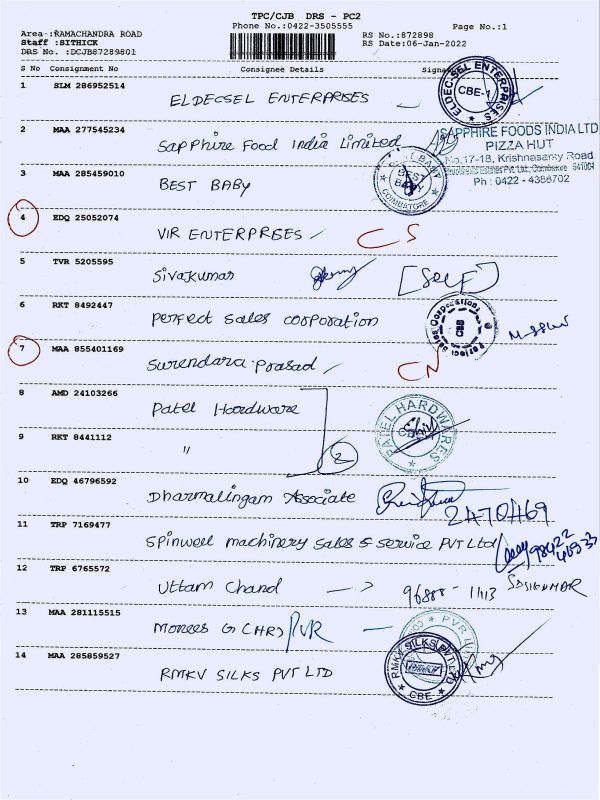 TPC/CJB DRS - PC2
Phone No.:0422-3505555
Page No.:1
Area :RAMACHANDRA ROAD
Staff :SITHICK
DRS No. :DCJB87289801
RS No.:872898
RS Date:06-Jan-2022
S No Consignment No Consignee Details
1 SLM 286952514 ELDECSEL ENTERPRISES
ELDECSEL ENTERPRISES CBE-1
2 MAA 277545234 Sapphire Food India Limited
SAPPHIRE FOODS INDIA LTD
PIZZA HUT
No.17-18, Krishnasamy Road
Ph : 0422 - 4388702
3 MAA 285459010 BEST BABY
BEST BABY COIMBATORE
4 EDQ 25052074 VIR ENTERPRISES CS
5 TVR 5205595 Sivakumar [Self]
6 RKT 8492447 Perfect Sales Corporation
Perfect Sales Corporation CBB
7 MAA 855401169 Surendara Prasad CN
8 AMD 24103266 Patel Hardware
PATEL HARDWARES
9 RKT 8441112 "
2
10 EDQ 46796592 Dharmalingam Associate
2470469
11 TRP 7169477 Spinwell machinery sales & service PVT Ltd
98422
12 TRP 6765572 Uttam Chand 96888 - 1113
SASIKUMAR
13 MAA 281115515 Monees G (HR) PVR
PVR
14 MAA 285859527 RMKV SILKS PVT LTD
RMKV SILKS PVT LTD CBE